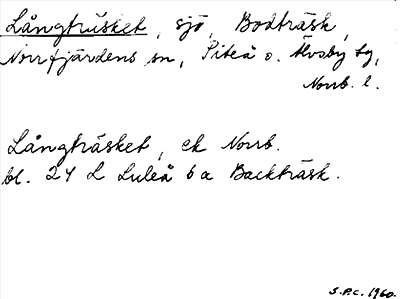 Långträsket, sjö, Bodträsk,
Norrfjärdens sn, Piteå o. Älvsby tg,
Norrb. l.
Långträsket, ek Norrb.
bl. 24 L Luleå 6 a Backträsk.
S.P.C. 1960.